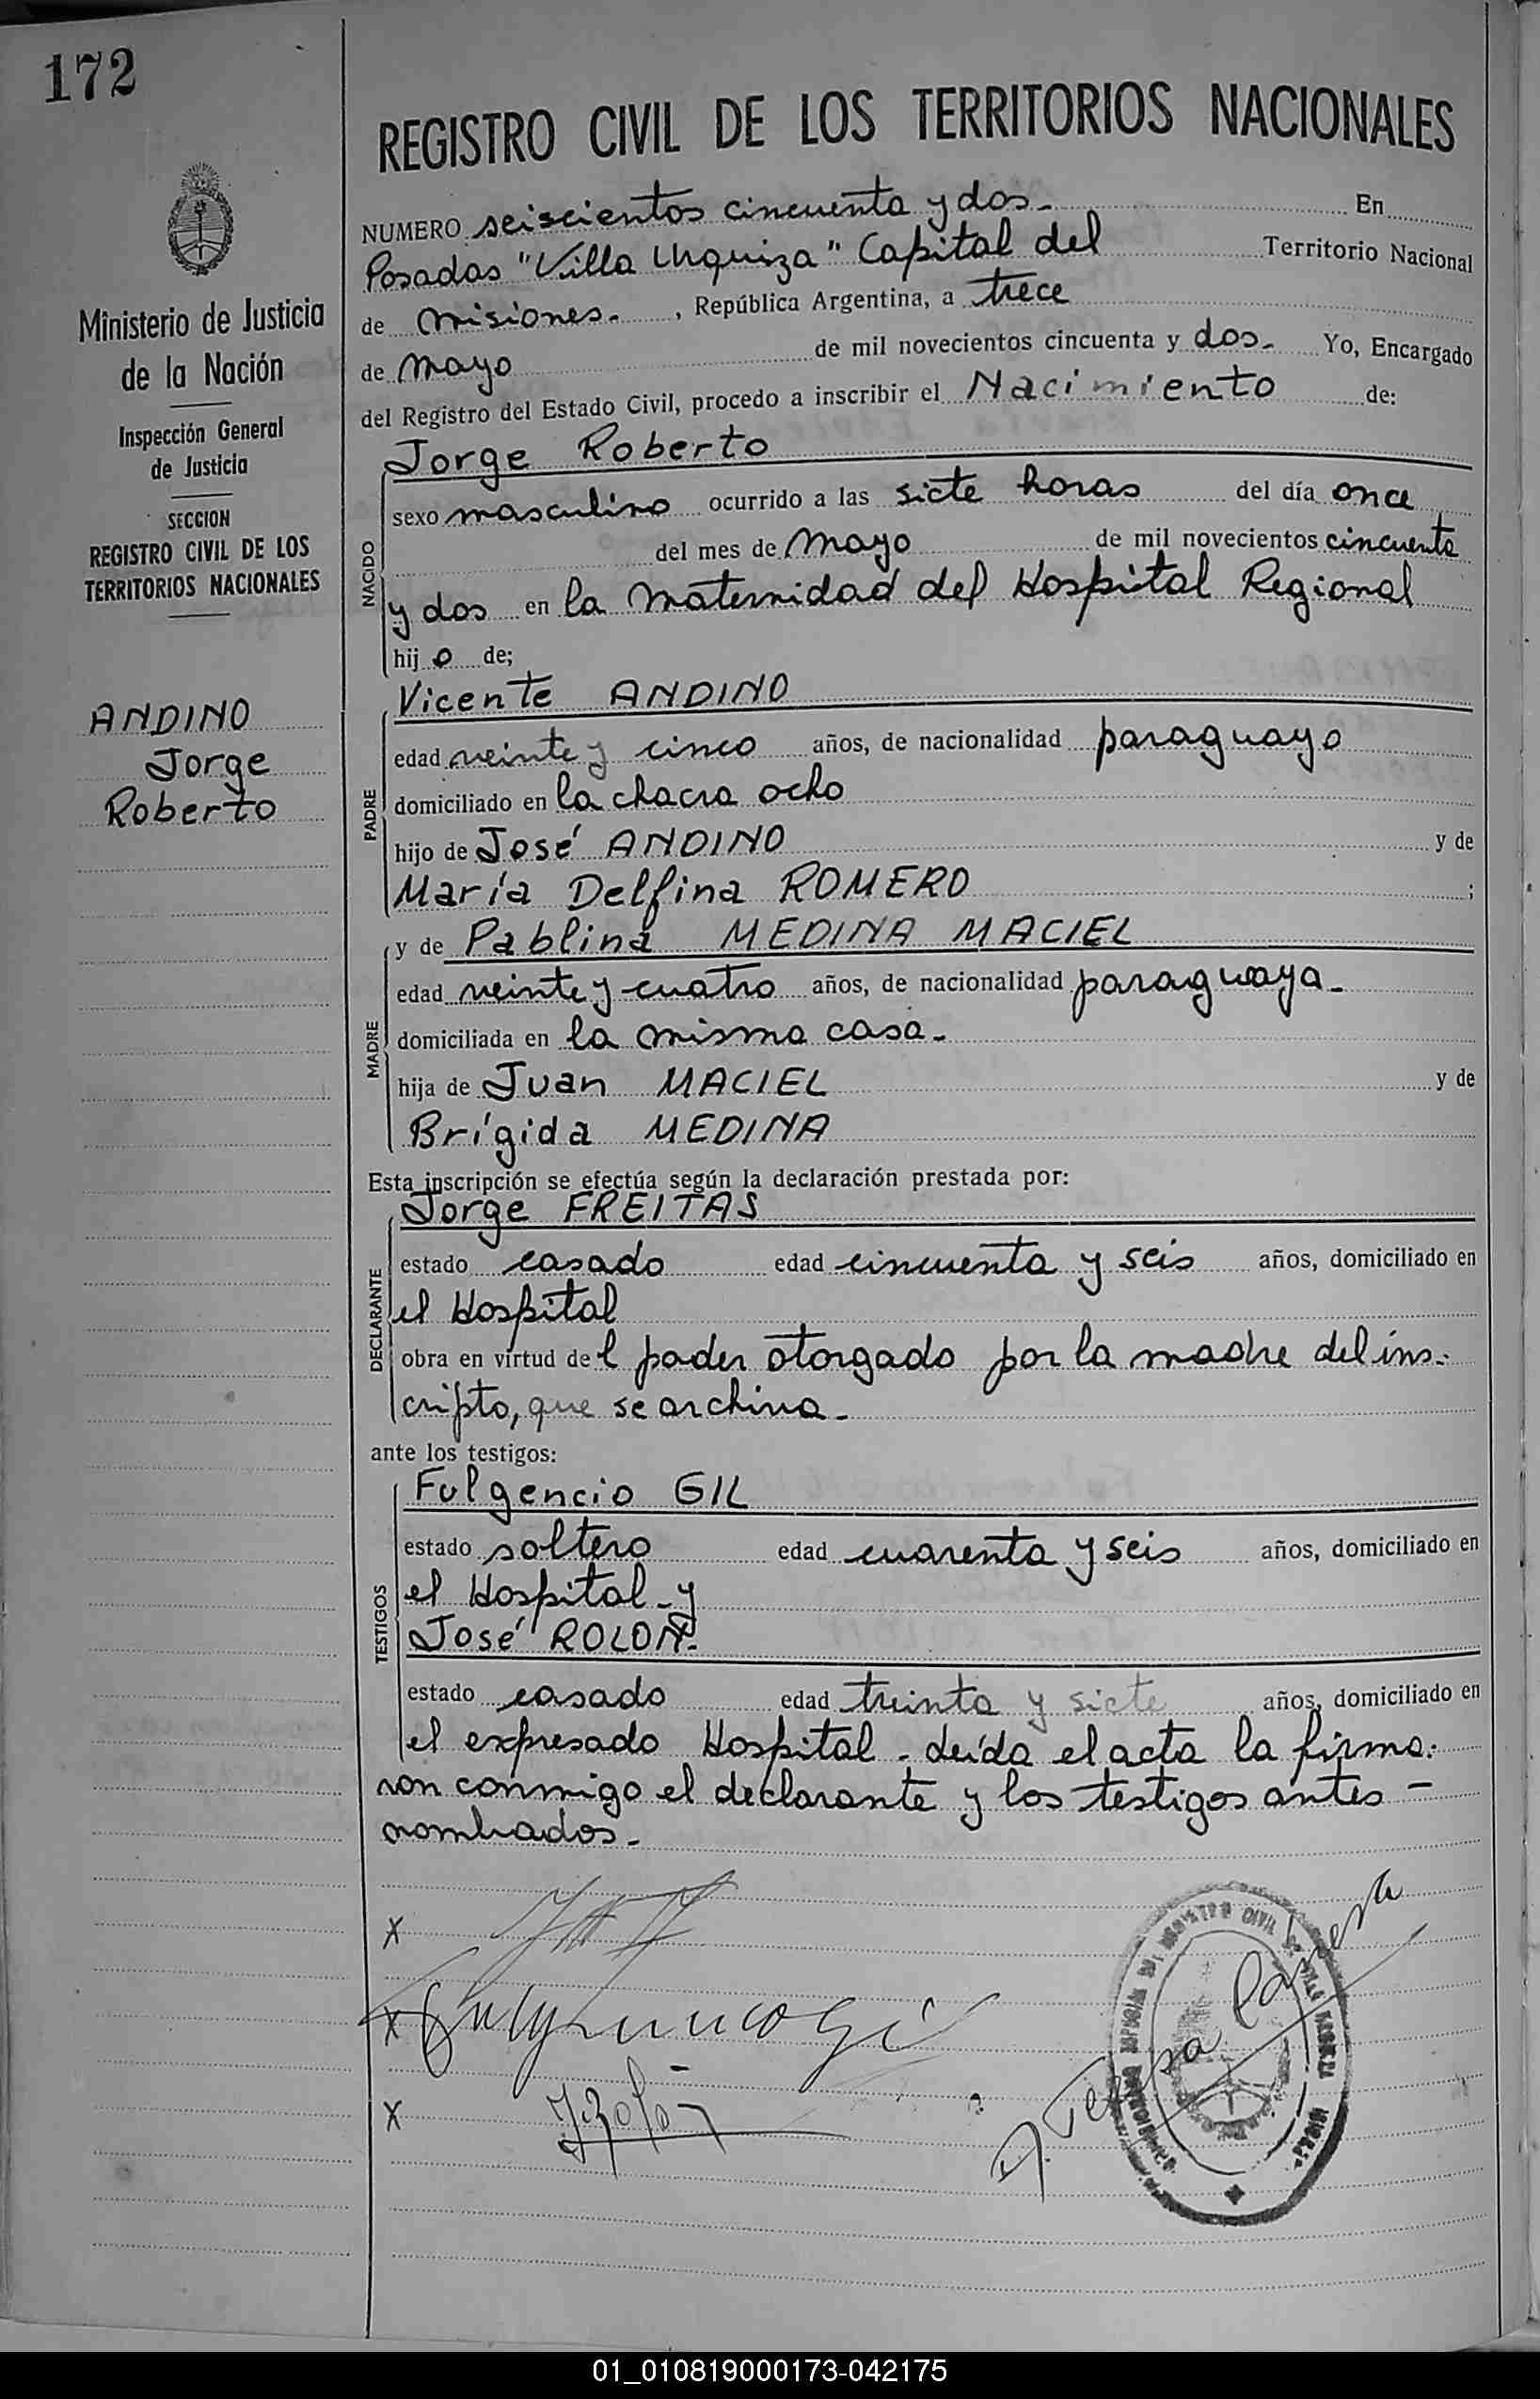 172
Ministerio de Justicia
de la Nación
Inspección General
de Justicia
SECCION
REGISTRO CIVIL DE LOS
TERRITORIOS NACIONALES
ANDINO
Jorge
Roberto
REGISTRO CIVIL DE LOS TERRITORIOS NACIONALES
NUMERO seiscientos cincuenta y dos.- En
Posadas "Villa Urquiza" Capital del Territorio Nacional
de Misiones.- , República Argentina, a trece
de Mayo de mil novecientos cincuenta y dos.- Yo, Encargado
del Registro del Estado Civil, procedo a inscribir el Nacimiento de:
Jorge Roberto
NACIDO
sexo masculino ocurrido a las siete horas del día once
del mes de Mayo de mil novecientos cincuenta
y dos en la Maternidad del Hospital Regional
hij o de;
Vicente ANDINO
PADRE
edad veinte y cinco años, de nacionalidad paraguayo
domiciliado en la chacra ocho
hijo de José ANDINO y de
María Delfina ROMERO ;
y de Pablina MEDINA MACIEL
MADRE
edad veinte y cuatro años, de nacionalidad paraguaya.-
domiciliada en la misma casa.-
hija de Juan MACIEL y de
Brígida MEDINA
Esta inscripción se efectúa según la declaración prestada por:
Jorge FREITAS
DECLARANTE
estado casado edad cincuenta y seis años, domiciliado en
el Hospital
obra en virtud de l poder otorgado por la madre del ins-
cripto, que se archiva.-
ante los testigos:
Fulgencio GIL
TESTIGOS
estado soltero edad cuarenta y seis años, domiciliado en
el Hospital.- y
José ROLON.-
estado casado edad treinta y siete años, domiciliado en
el expresado Hospital.- Leída el acta la firma-
ron conmigo el declarante y los testigos antes -
nombrados.-
X
X Fulgencio Gil
X J. Rolón
01_010819000173-042175